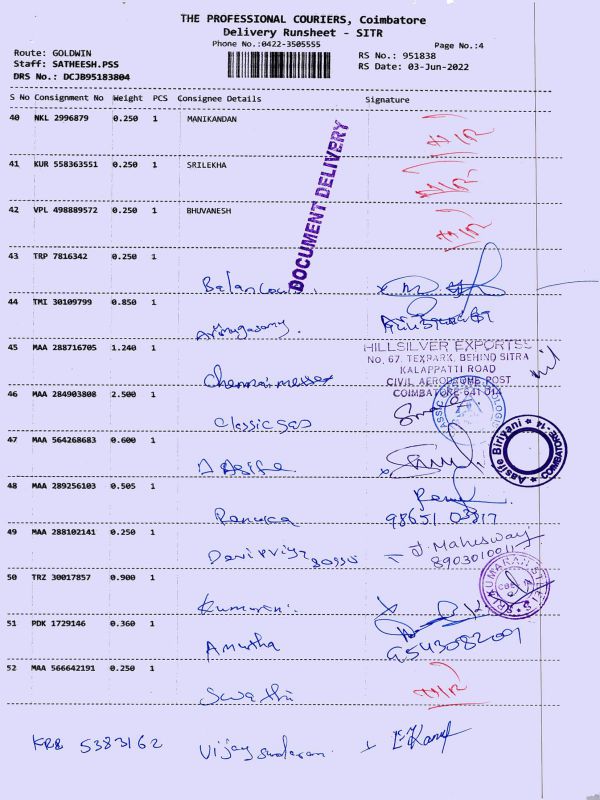 THE PROFESSIONAL COURIERS, Coimbatore
Delivery Runsheet - SITR
Phone No.:0422-3505555
Page No.:4
Route: GOLDWIN
RS No.: 951838
Staff: SATHEESH.PSS
RS Date: 03-Jun-2022
DRS No.: DCJB95183804
S No Consignment No Weight PCS Consignee Details Signature
40 NKL 2996879 0.250 1 MANIKANDAN
41 KUR 558363551 0.250 1 SRILEKHA
42 VPL 498889572 0.250 1 BHUVANESH
DOCUMENT DELIVERY
43 TRP 7816342 0.250 1
44 TMI 30109799 0.850 1
Arumugasamy
45 MAA 288716705 1.240 1
HILLSILVER EXPORTSS
NO, 67. TEXPARK, BEHIND SITRA
KALAPPATTI ROAD
CIVIL AERODROME POST
COIMBATORE-641 014
nil
46 MAA 284903808 2.500 1
Classic gas
47 MAA 564268683 0.600 1
Aasife Biriyani COIMBATORE-14
48 MAA 289256103 0.505 1
Renuka
98651 03317
49 MAA 288102141 0.250 1
Devipriya
J. Maheswari
8903010011
50 TRZ 30017857 0.900 1
SRI KUMARAN STEELS
Kumaran
51 PDK 1729146 0.360 1
Amutha
9543082009
52 MAA 566642191 0.250 1
Swathi
KRB 5383162 Vijay